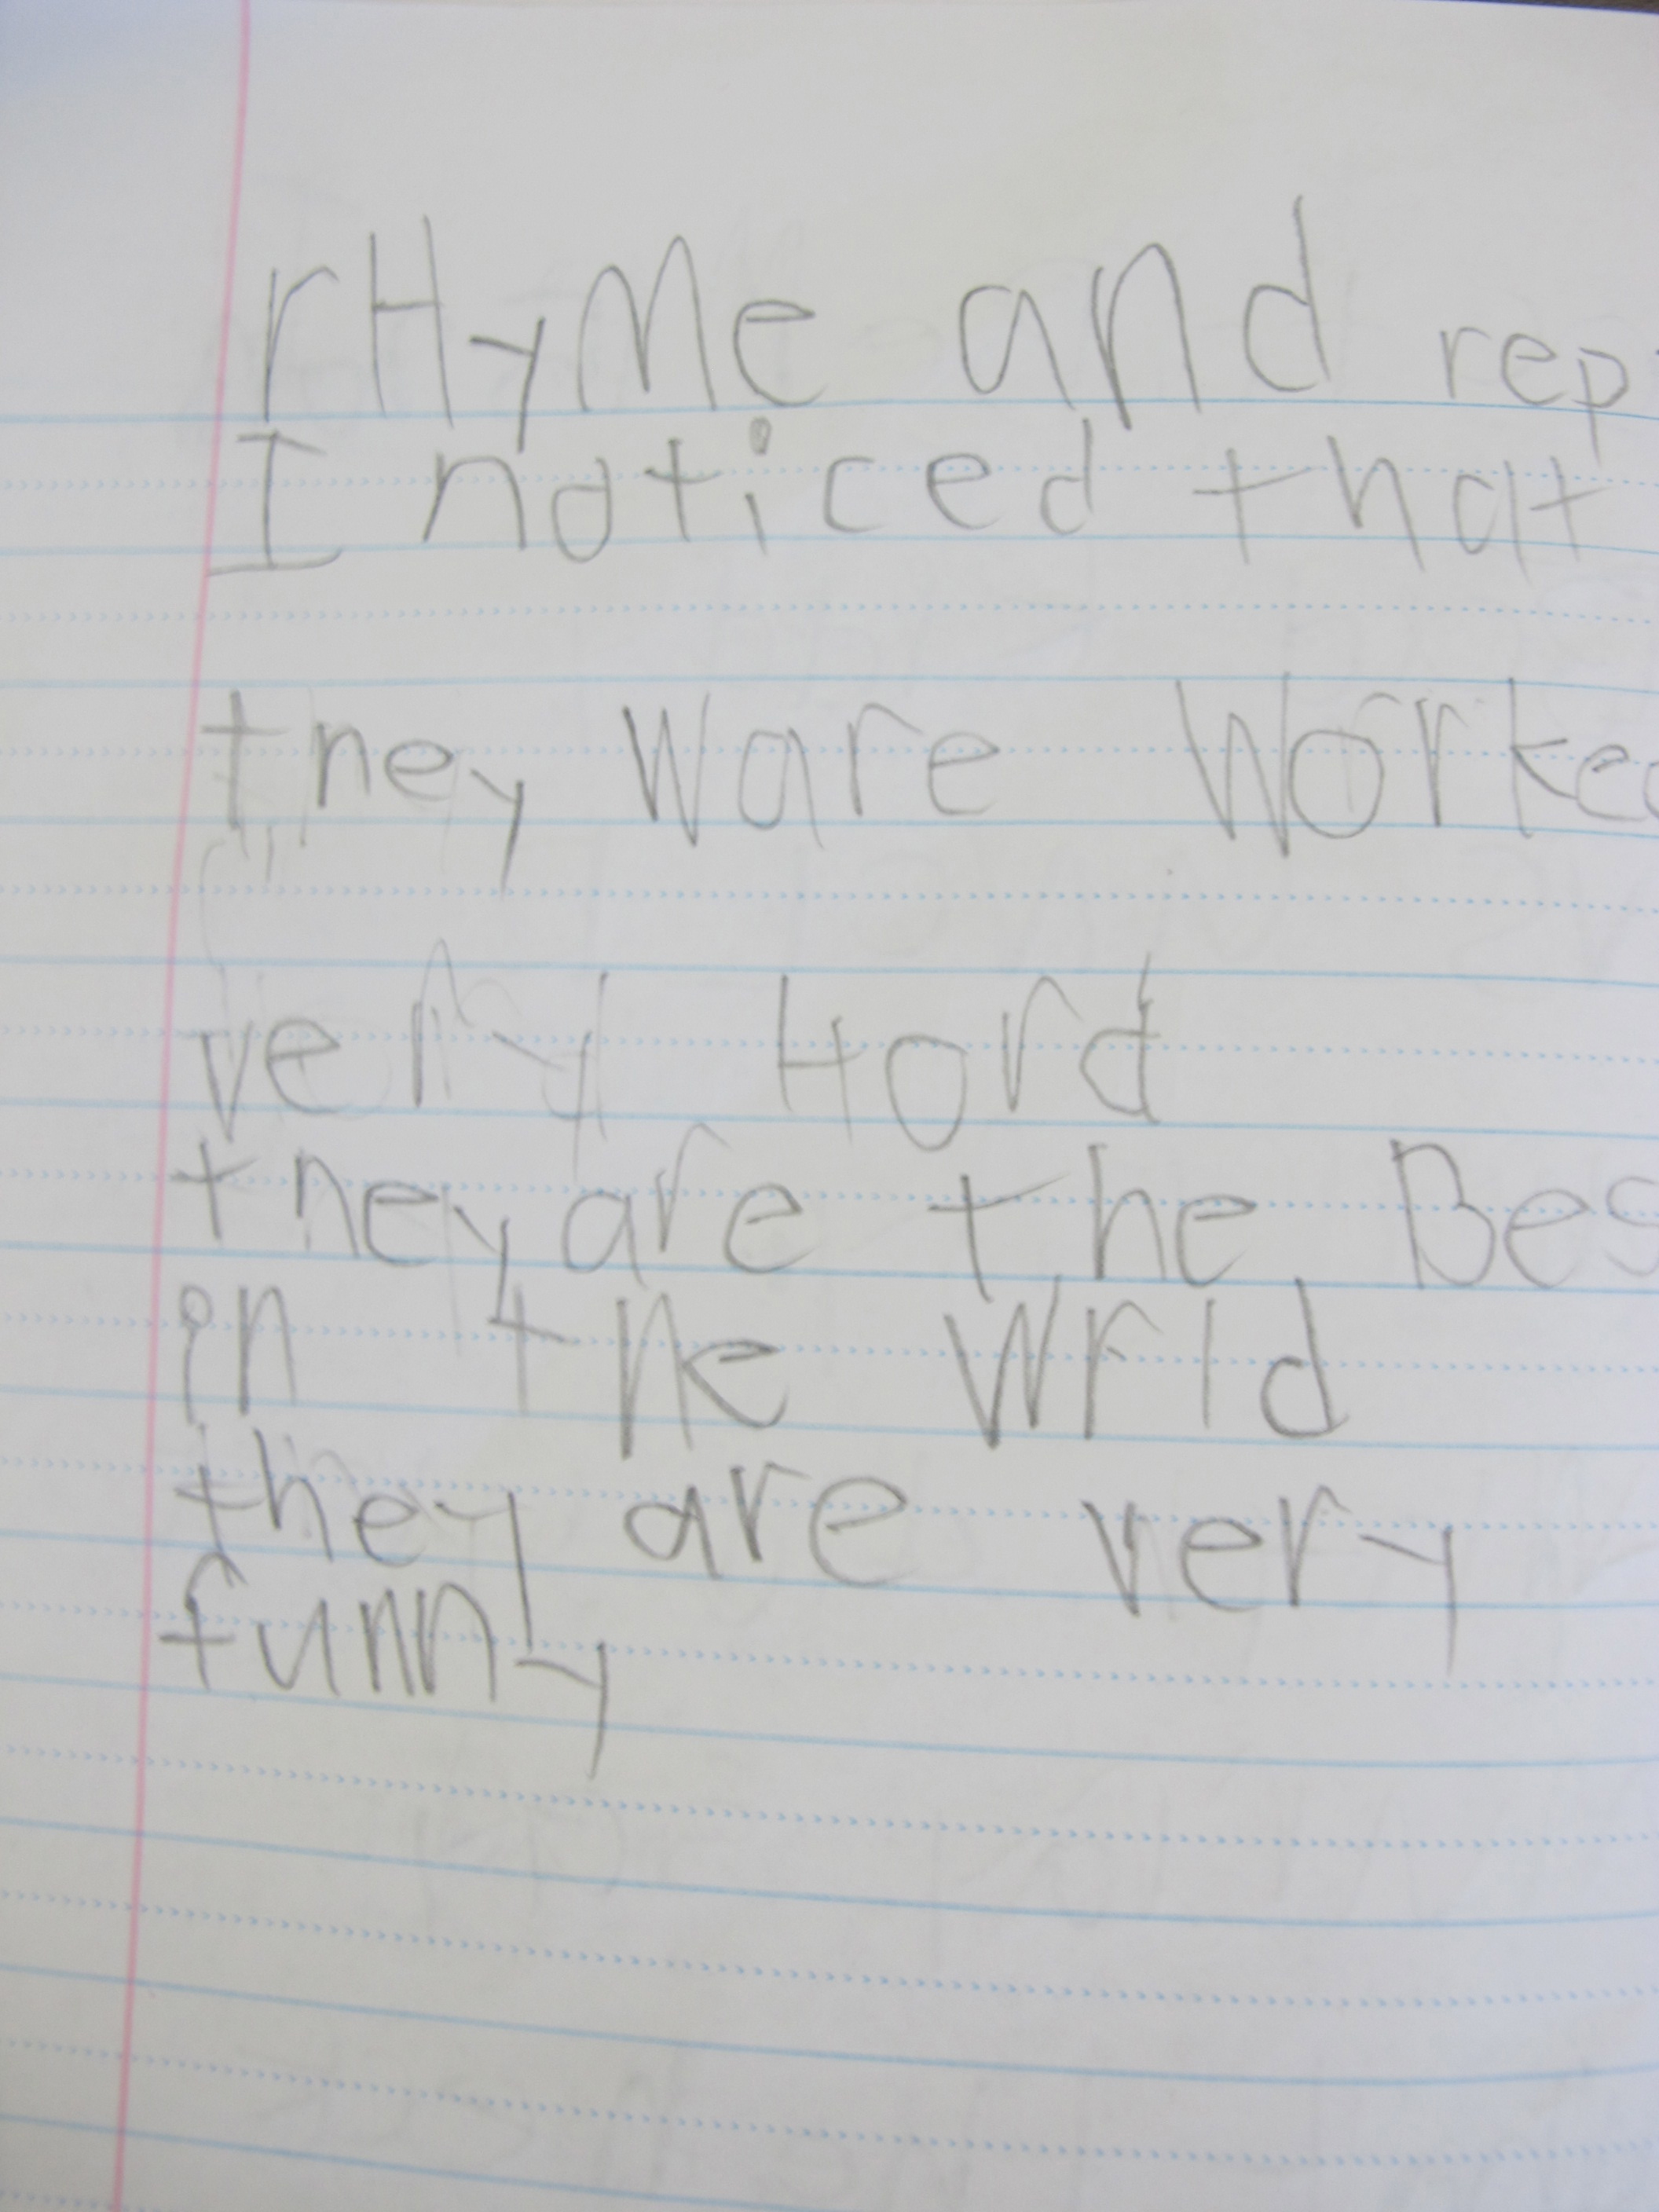 rHyMe and rep
I noticed that
they ware Worked
very Hord
they are the Bes
in the Wrld
they are very
funny